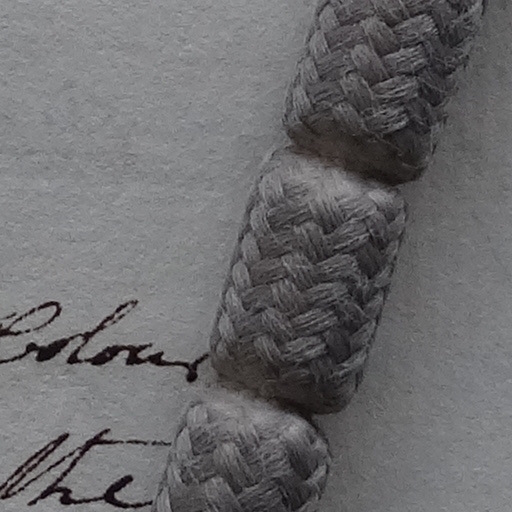 Colour
the